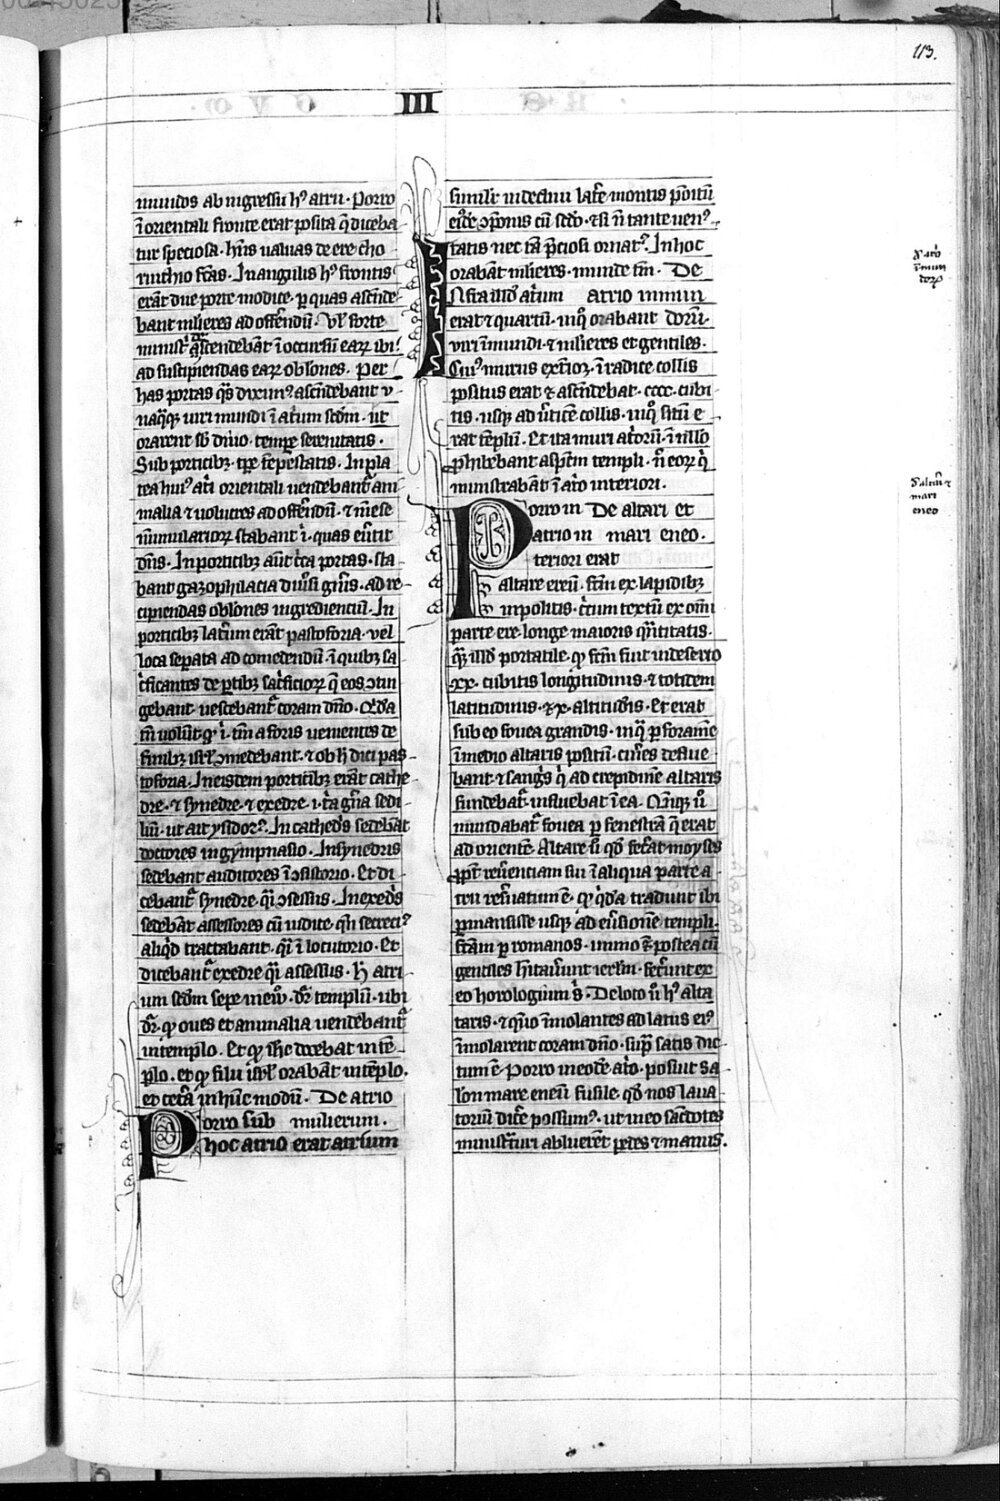 113.
III
mundos ab ingressu hꝰ atrii · Porro
ī orientali fronte erat posita q̄ diceba
tur speciosa · hn̄s ualuas de ere cho
rinthio fc̄as · In angulis hꝰ frontis
erāt due porte modice · ꝑ quas ascēde
bant ml̄ieres ad offerēdū · Vl̓ forte
ministᵢ descendebāt ī occursū eaꝝ ibi
ad suscipiendas eaꝝ obl̓ones · Per
has portas q̄s diximꝰ ascēdebant v
naq̄qꝫ uiri mundi ī at̓um sc̄dm · ut
orarent sb̓ diuo · tempe serenitatis ·
Sub porticibꝫ · tꝑe tēpestatis · In pla
tea huiꝰ at̓i orientali uendebant᷑ ani
malia ⁊ uolucres ad offerēdū · ⁊ mēse
nūmularioꝝ stabant · i · quas eu̓tit
dn̄s · In porticibꝫ aūt cͥca portas · sta
bant gazophilacia diu̓si gn̄is · ad re
cipiendas obl̓ones ingredienciū · In
porticibꝫ lat̓um erāt pastoforia · vel
loca seꝑata ad comedendū ī quibꝫ sa
c̓ficantes de ꝑtibꝫ sac̓ficioꝝ q̄ eos ꝯtin
gebant uescebant᷑ coram dn̄o · Q̓da
m̄ uolūt ꝙ · i · tm̄ a foris uenientes de
finibꝫ isrl̓ ꝯmedebant · ⁊ ob h̓ dici pas
toforia · In eisdem porticibꝫ erāt cathe
dre · ⁊ synedre · ⁊ exedre · i · t̓a gn̄a sedi
liū · ut ait ysidorꝰ · In cathed̓s sedebāt
doctores in gympnasio · In synedris
sedebant auditores ī ꝯsistorio · Et di
cebant᷑ synedre · q̄i ꝯsessus · In exed̓s
sedebāt assessores cū iudice · qn̄ secreciꝰ
aliq̓d tractabant · q̄i ī locutorio · Et
dicebant᷑ exedre q̄i assessus · H̓ atri
um sc̄dm sepe inew̄ · dr̄ templū · ubi
dr̄ · ꝙ oues et animalia uendebant᷑
in templo · Et ꝙ ih̄c docebat in tē
plo · et ꝙ filii isrl̓ orabāt in tēplo ·
et cetᷓa in hūc modū · De atrio
Porro sub mulierum ·
hoc atrio erat atrium
simil̓r in decliui lat̓e montis posītū
eiꝰdē ꝯpōnis cū sc̄do · ⁊ si n̄ tante uenꝰ
tatis nec tā p̄ciosi ornatꝰ · In hoc
orabāt ml̓ieres · munde tm̄ · De
Infra illud at̓ium atrio inmun
erat ⁊ quartū · inq̊ orabant doꝝ ·
uiri īmundi · ⁊ ml̓ieres et gentiles ·
Cuiꝰ murus ext̓ioꝝ · ī radice collis
positus erat ⁊ ascēdebat · cccc · cubi
tis · usqꝫ ad u̓tice collis · inq̊ sitū e
rat tēplū · Et ita muri at̓orū · ī illo
ꝓhibebant aspc̄m templi · n̄ eoꝝ q̓
ministrabāt ī at̓o interiori ·
Porro in De altari et
atrio in mari eneo ·
teriori erat
altare ereū · fc̄m ex lapidibꝫ
inpolitis · c̓cum textū ex om̄i
parte ere · longe maioris q̄ntitatis ·
q̄ꝫ illd̓ portatile · ꝙ fc̄m fuit in deserto
xx · cubitis longitudinis · ⁊ totidem
latitudinis · ⁊ x · altitud̓is · Et erat
sub eo fouea grandis · inq̄ ꝑ foramē
ī medio altaris positū · cin̓es deflue
bant · ⁊ sangⁱs qͥ ad crepidinē altaris
fundebat᷑ · influebat ī ea · Qn̄qꝫ ū
mundabat᷑ fouea ꝑ fenestrā q̄ erat
ad oriente · Altare ū qd̓ fec̓at moyses
ꝓpt̓ reuerenciam sui ī aliqua parte a
trii reseruatum ē · ꝙ qͥda tradunt ibi
ꝑmansisse usqꝫ ad eu̓sionē templi ·
fc̄am ꝑ romanos · immo ⁊ postea cū
gentiles h̓itauerunt ierl̓m · fec̓unt ex
eo horologium s̓ · De loto ū hꝰ alta
taris · ⁊ q̊uo īmolantes ad latus eiꝰ
īmolarent coram dn̄o · supͣ satis dic
tum ē · Porro in eodē at̓o · posuit sa
lon̄ mare eneū fusile · qd̓ nos laua
toriū dic̓e possumꝰ · ut in eo sac̓dotes
ministͣturi abluerēt pedes ⁊ manus ·